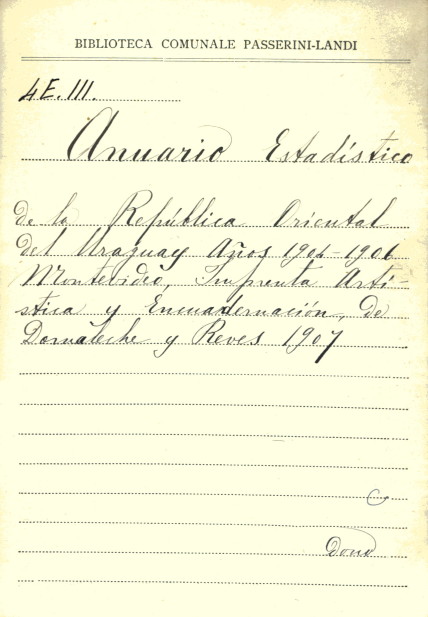 BIBLIOTECA COMUNALE PASSERINI-LANDI
4E.III.
Anuario Estadístico
de la República Oriental
del Uraguay Años 1904-1906
Montevideo, Imprenta Arti-
stica y Encuadernación, de
Dornaleche y Reves 1907
dono